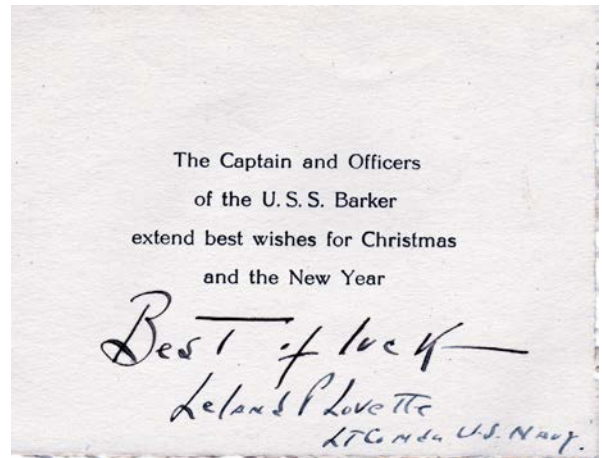 The Captain and Officers
of the U. S. S. Barker
extend best wishes for Christmas
and the New Year
Best of luck
Leland P Lovette
Lt Comdr U.S. Navy.